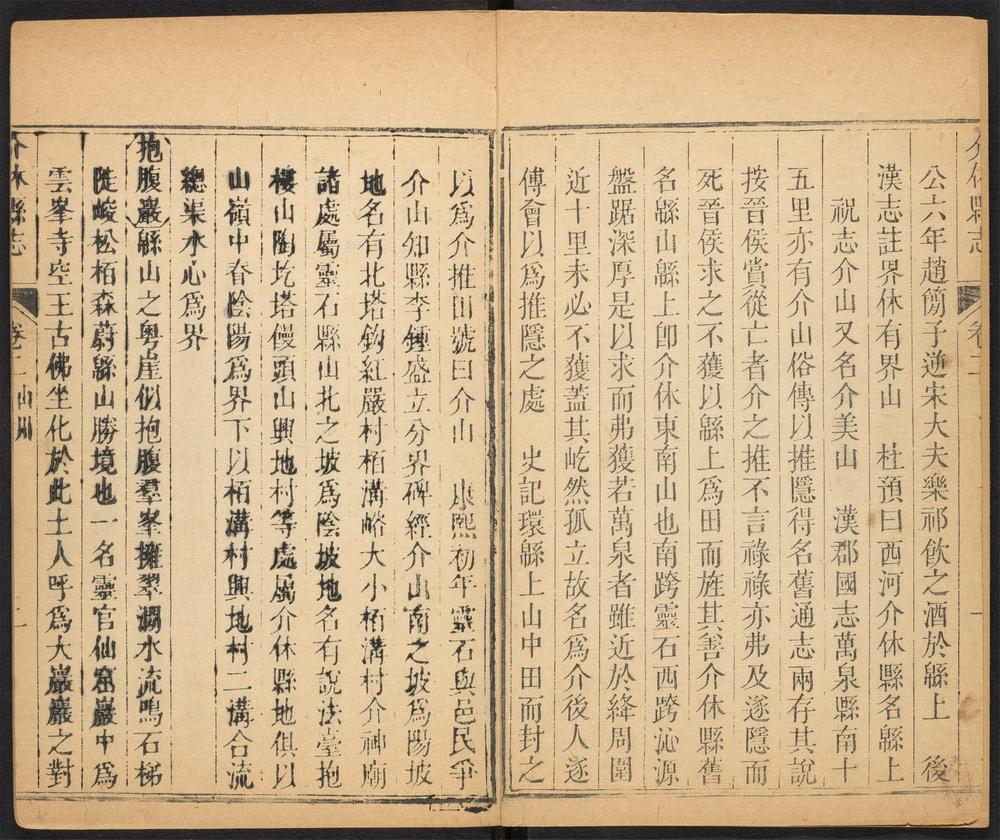 介休縣志
卷二
一
公六年趙簡子逆宋大夫樂祁飲之酒於緜上　後
漢志註界休有界山　杜預曰西河介休縣名緜上
祝志介山又名介美山　漢郡國志萬泉縣南十
五里亦有介山俗傳以推隱得名舊通志兩存其說
按晉侯賞從亡者介之推不言祿祿亦弗及遂隱而
死晉侯求之不獲以緜上爲田而旌其善介休縣舊
名緜山緜上卽介休東南山也南跨靈石西跨沁源
盤踞深厚是以求而弗獲若萬泉者雖近於絳周圍
近十里未必不獲蓋其屹然孤立故名爲介後人遂
傅會以爲推隱之處　史記環緜上山中田而封之
以爲介推田號曰介山　康熙初年靈石與邑民爭
介山知縣李鍾盛立分界碑經介山南之坡爲陽坡
地名有北塔鈎紅嚴村栢溝峪大小栢溝村介神廟
諸處屬靈石縣山北之坡爲陰坡地名有說法臺抱
樓山陶圪塔饅頭山興地村等處屬介休縣地俱以
山嶺中脊陰陽爲界下以栢溝村興地村二溝合流
總渠水心爲界
抱腹巖緜山之粤崖似抱腹羣峯擁翠澗水流鳴石梯
陡峻松栢森蔚緜山勝境也一名靈官仙窟巖中爲
雲峯寺空王古佛坐化於此土人呼爲大巖巖之對
介休縣志
卷二　山川
二